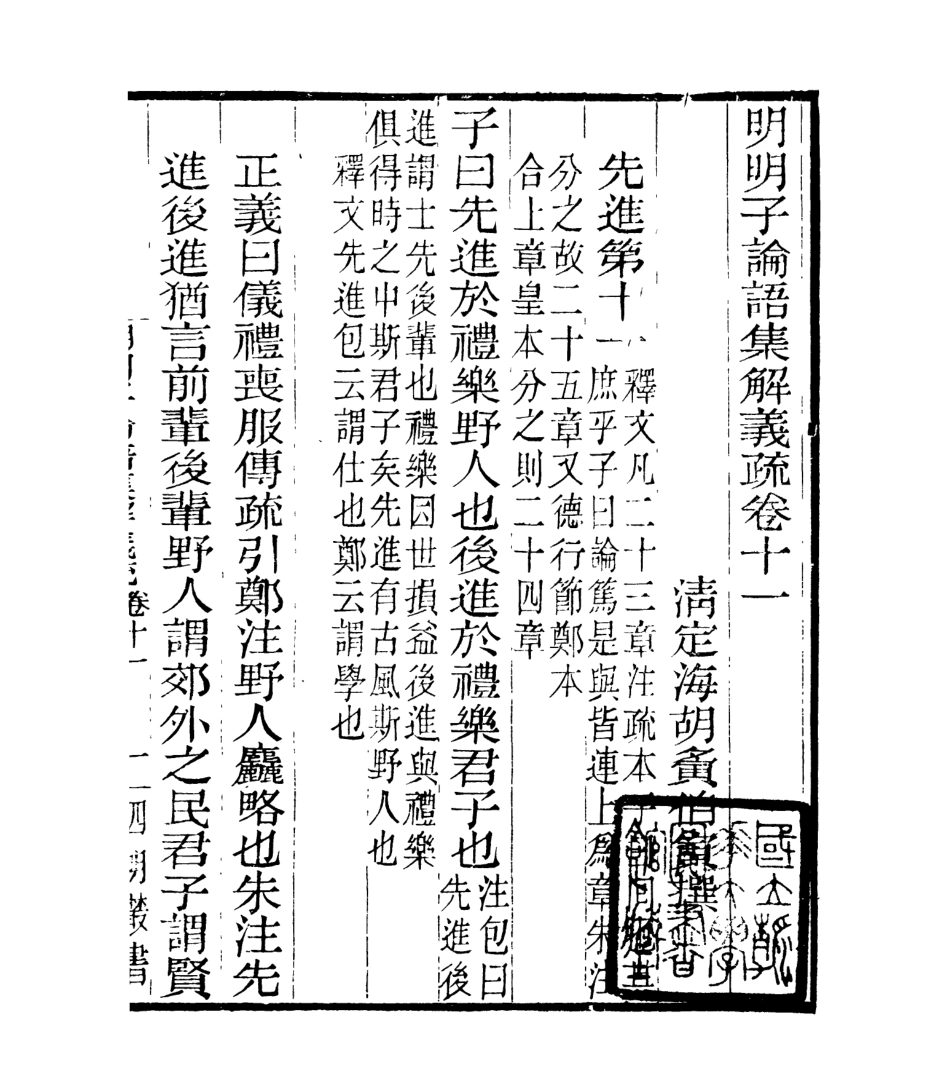 明明子論語集解義疏卷十一
清定海胡夤撰
先進第十一
釋文凡二十三章注疏本
庶乎子曰論篤是與皆連上爲章朱注
分之故二十五章又德行節鄭本
合上章皇本分之則二十四章
子曰先進於禮樂野人也後進於禮樂君子也
注包曰
先進後
進謂士先後輩也禮樂因世損益後進與禮樂
俱得時之中斯君子矣先進有古風斯野人也
釋文先進包云謂仕也鄭云謂學也
正義曰儀禮喪服傳疏引鄭注野人麤略也朱注先
進後進猶言前輩後輩野人謂郊外之民君子謂賢
卷十一 一 四明叢書
國立